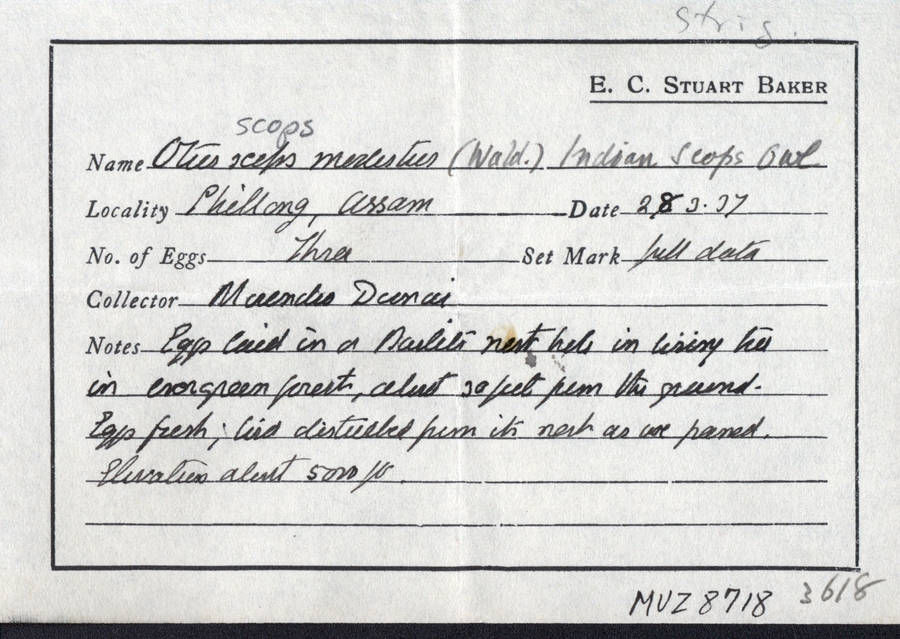 Strig.
E. C. STUART BAKER
scops
Name Otus scops modestus (Wald.) Indian Scops Owl
Locality Phillong, Assam Date 28 3. 37
No. of Eggs Three Set Mark full data
Collector
Notes Eggs laid in a Barbet's nest hole in living tree
in evergreen forest, about 30 feet from the ground.
Eggs fresh; bird disturbed from its nest as we passed.
Elevation about 5000 ft.
MUZ 8718 3618